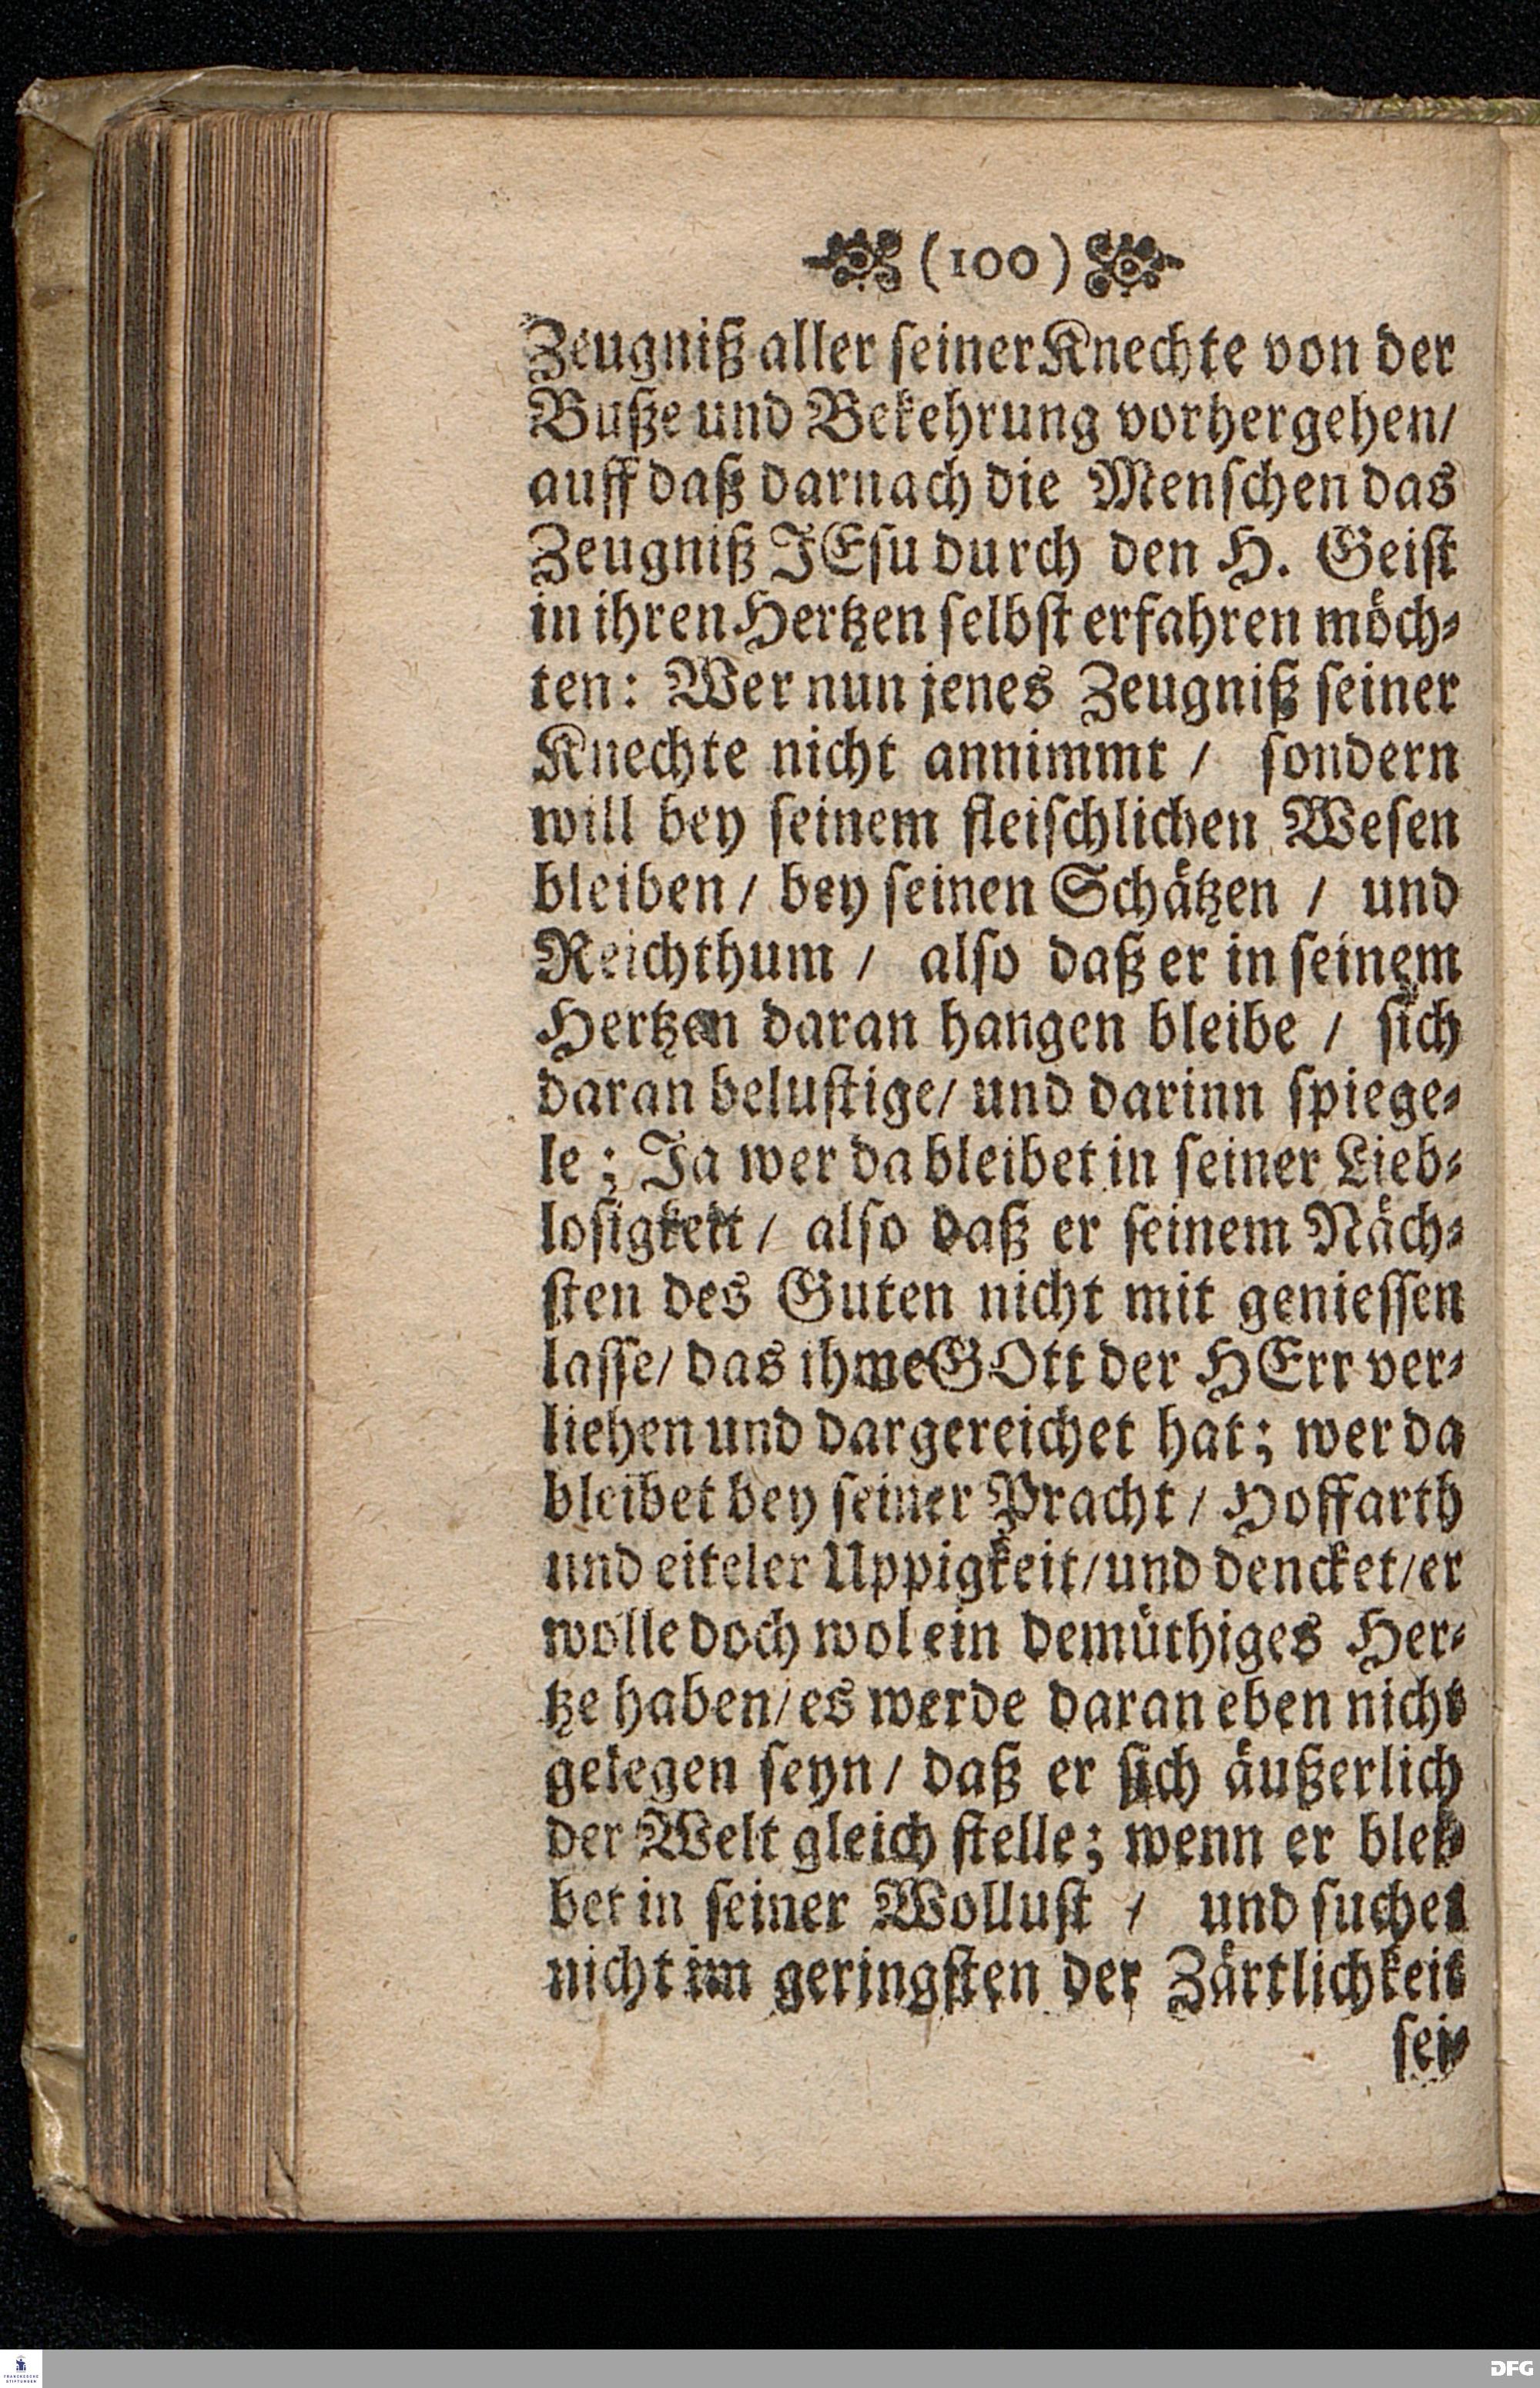 (100)
Zeugniß aller seiner Knechte von der
Buße und Bekehrung vorhergehen/
auff daß darnach die Menschen das
Zeugniß JEsu durch den H. Geist
in ihren Hertzen selbst erfahren möch-
ten: Wer nun jenes Zeugniß seiner
Knechte nicht annimmt / sondern
will bey seinem fleischlichen Wesen
bleiben / bey seinen Schätzen / und
Reichthum / also daß er in seinem
Hertzen daran hangen bleibe / sich
daran belustige/ und darinn spiege-
le ; Ja wer da bleibet in seiner Lieb-
losigkeit / also daß er seinem Näch-
sten des Guten nicht mit geniessen
lasse/ das ihme GOtt der HErr ver-
liehen und dargereichet hat; wer da
bleibet bey seiner Pracht / Hoffarth
und eiteler Uppigkeit/und dencket/er
wolle doch wol ein demüthiges Her-
tze haben/es werde daran eben nicht
gelegen seyn / daß er sich äußerlich
der Welt gleich stelle; wenn er blei-
bet in seiner Wollust / und suchet
nicht im geringsten der Zärtlichkeit
sei-
FRANCKESCHE
STIFTUNGEN
DFG